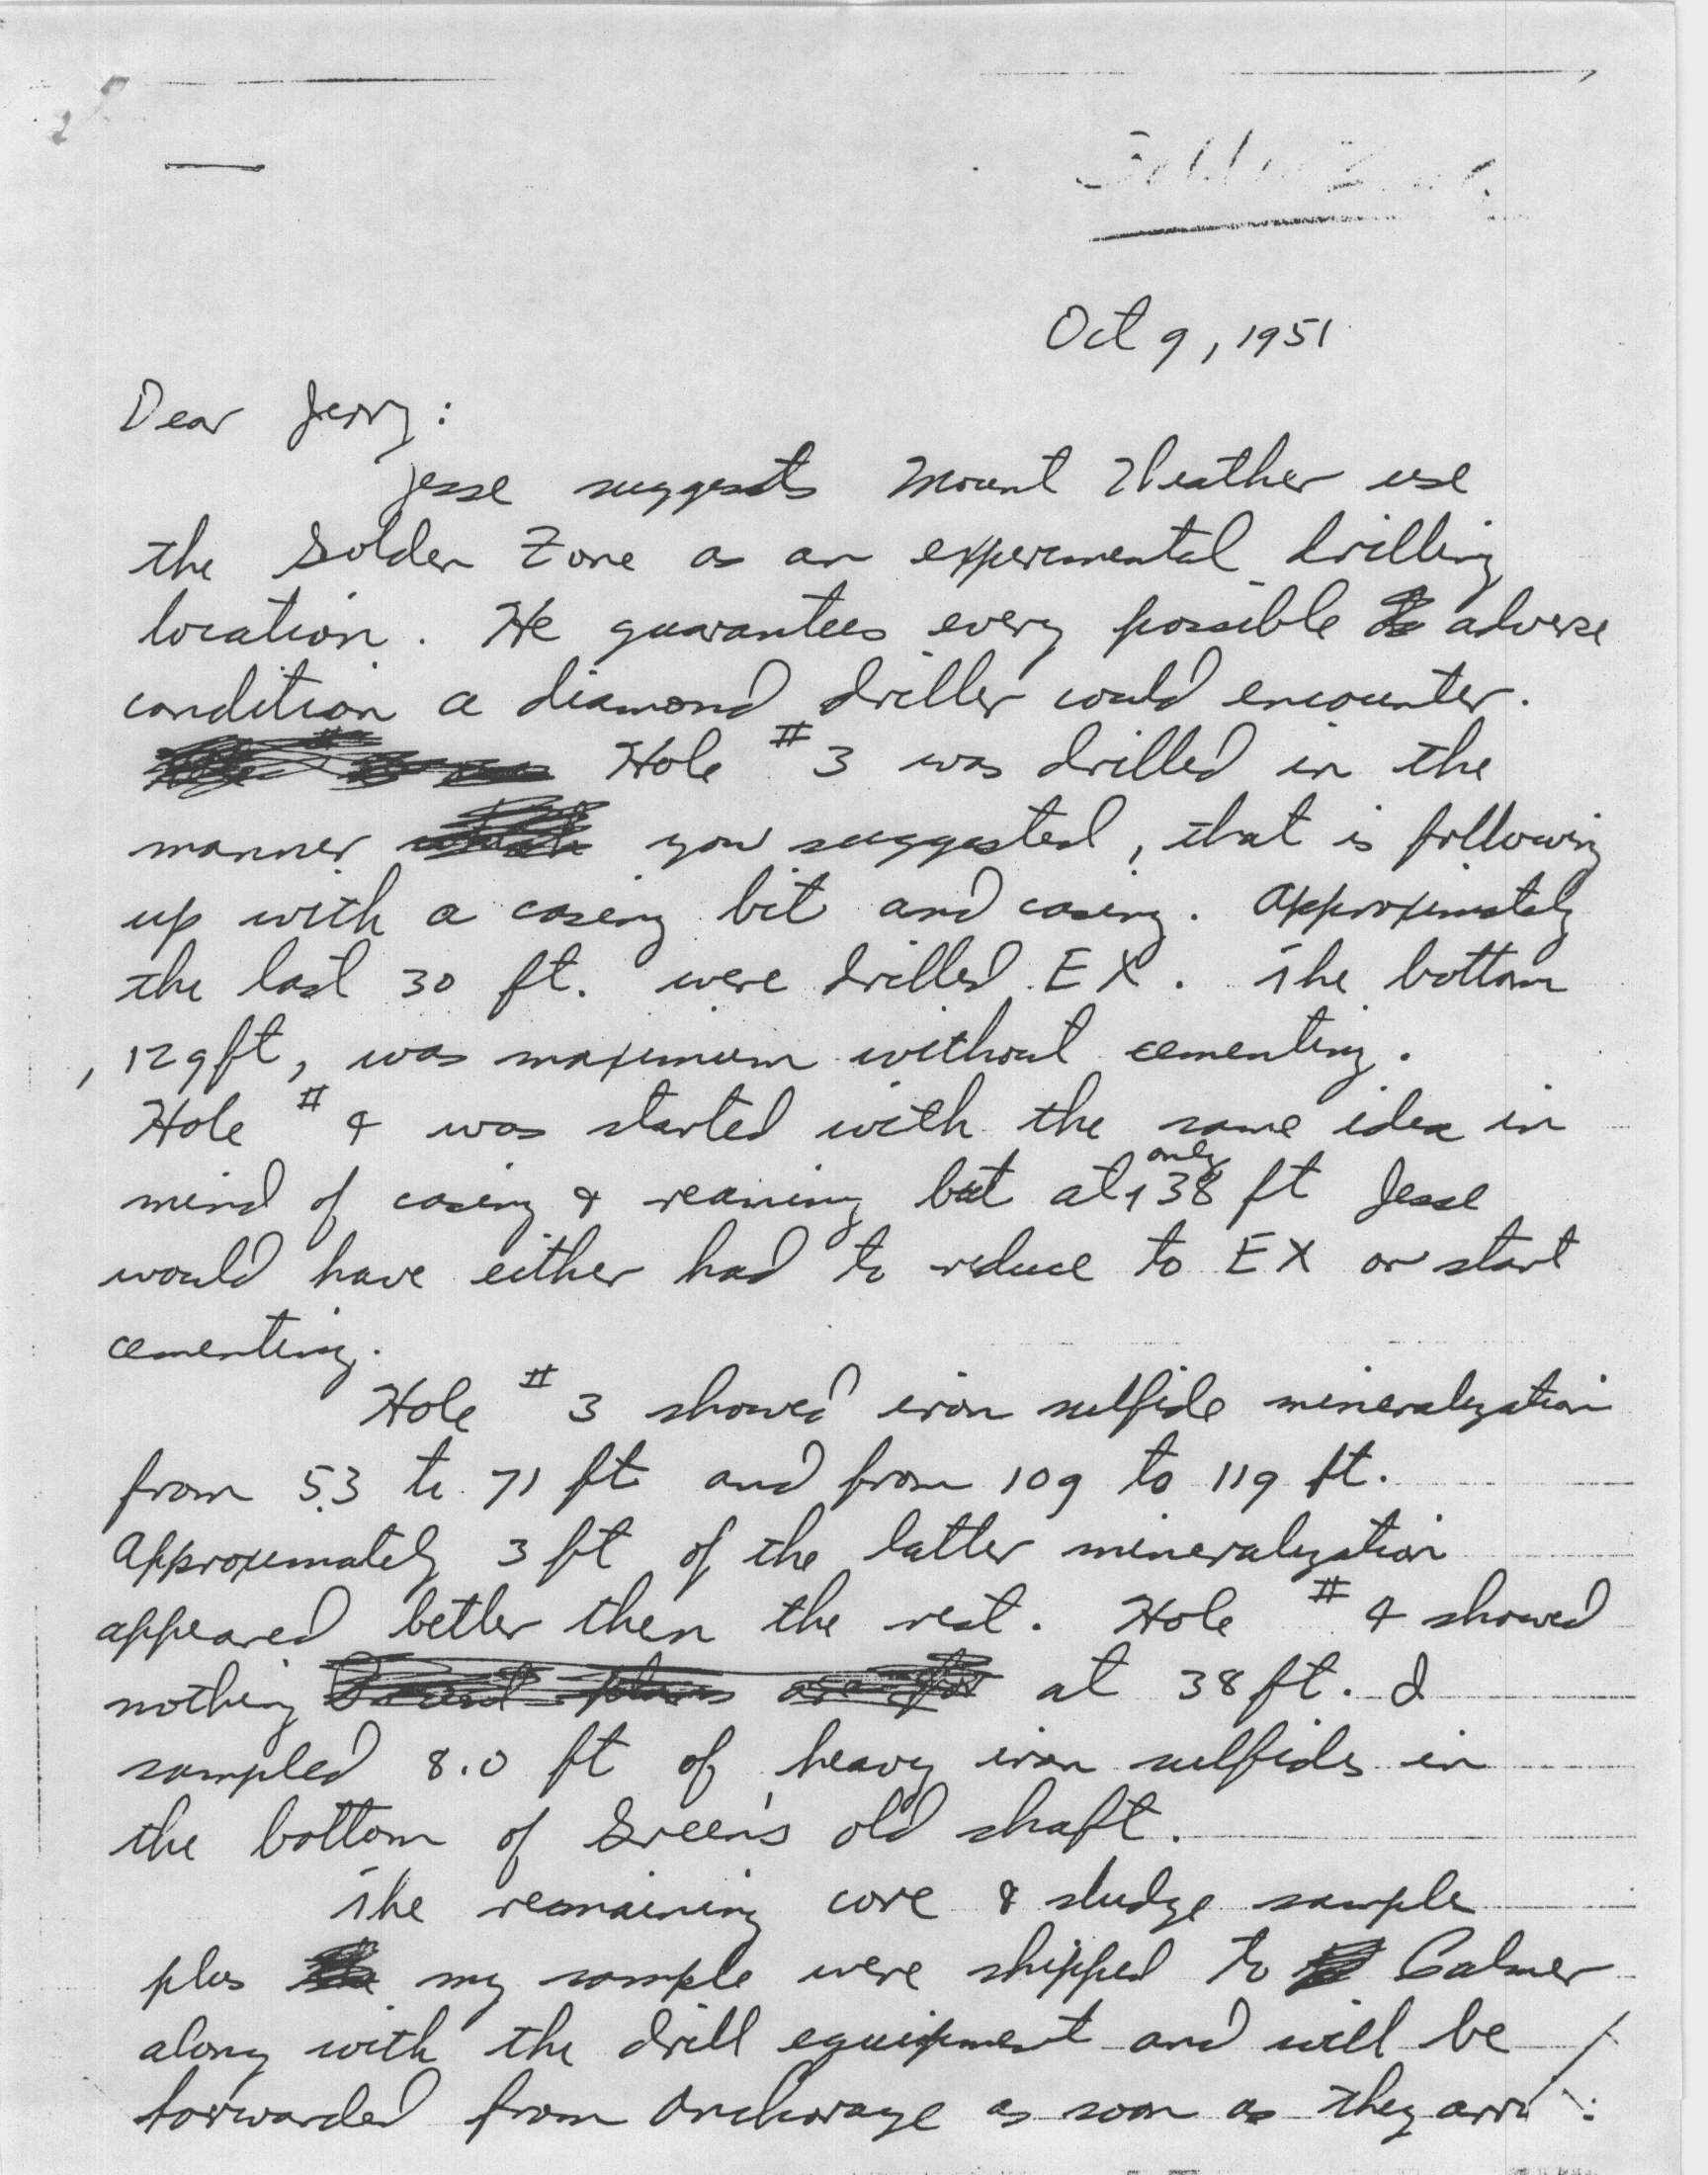 Oct 9, 1951
Dear Jerry:
Jesse suggests Mount Weather use
the Golden Zone as an experimental drilling
location. He guarantees every possible adverse
condition a diamond driller could encounter.
Hole #3 was drilled in the
manner you suggested, that is following
up with a casing bit and casing. Approximately
the last 30 ft. were drilled EX. The bottom
, 129 ft, was maximum without cementing.
Hole #4 was started with the same idea in
mind of casing & reaming but at only 38 ft Jesse
would have either had to reduce to EX or start
cementing.
Hole #3 showed iron sulfide mineralization
from 53 to 71 ft and from 109 to 119 ft.
Approximately 3 ft of the latter mineralization
appeared better then the rest. Hole #4 showed
nothing at 38 ft. I
sampled 8.0 ft of heavy iron sulfides in
the bottom of Green's old shaft.
The remaining core & sludge sample
plus my sample were shipped to Palmer
along with the drill equipment and will be
forwarded from Anchorage as soon as they